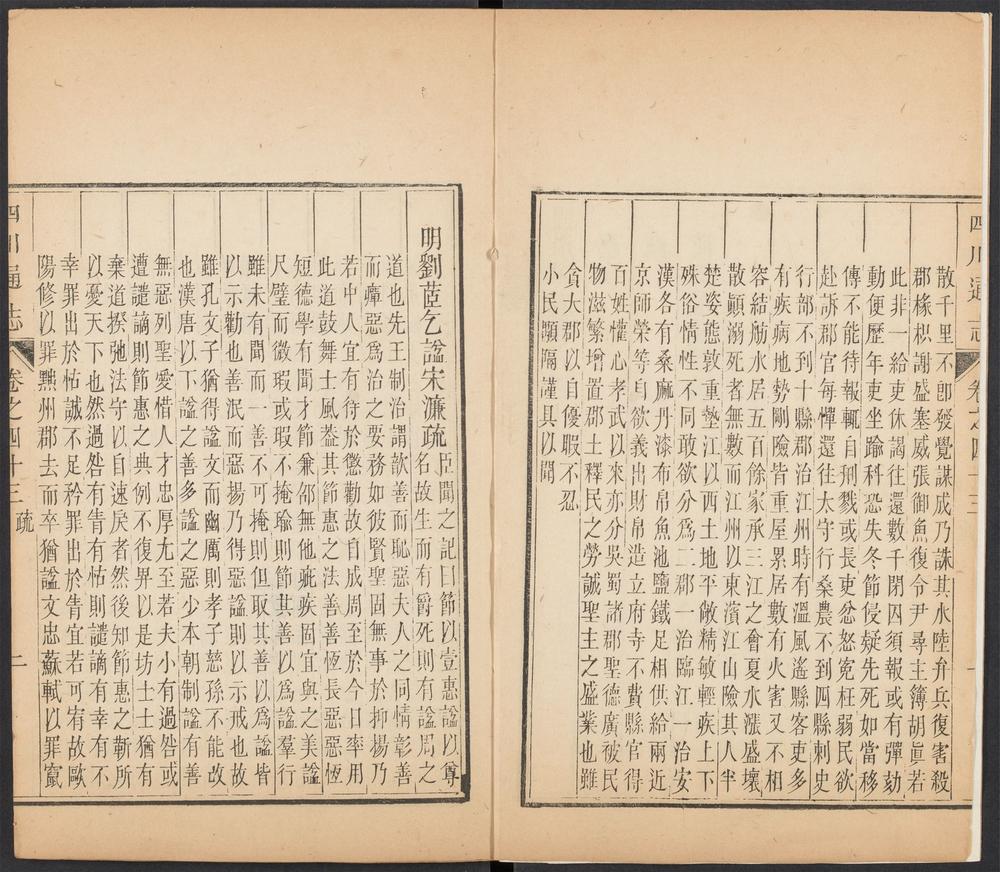 四川通志 卷之四十三 一
散千里不卽發覺謀成乃誅其水陸弁兵復害殺
郡椽枳謝盛塞威張御魚復令尹尋主簿胡眞若
此非一給吏休謁往還數千閉囚須報或有彈劾
動便歷年吏坐踰科恐失冬節侵疑先死如當移
傳不能待報輒自刑戮或長吏忿怒寃枉弱民欲
赴訴郡官每憚還往太守行桑農不到四縣刺史
行部不到十縣郡治江州時有溫風遙縣客吏多
有疾病地勢剛險皆重屋累居數有火害又不相
容結舫水居五百餘家承三江之會夏水漲盛壞
散顚溺死者無數而江州以東濱江山險其人半
楚姿態敦重墊江以西土地平敞精敏輕疾上下
殊俗情性不同敢欲分爲二郡一治臨江一治安
漢各有桑麻丹漆布帛魚池鹽鐵足相供給兩近
京師榮等自欲義出財帛造立府寺不費縣官得
百姓懽心孝武以來亦分吳蜀諸郡聖德廣彼民
物滋繁增置郡土釋民之勞誠聖主之盛業也雖
貪大郡以自優暇不忍
小民顒隔謹具以聞
明劉茝乞諡宋濂疏 臣聞之記曰節以壹惠諡以尊
名故生而有爵死則有諡周之
道也先王制治謂歆善而恥惡夫人之同情彰善
而癉惡爲治之要務如彼賢聖固無事於抑揚乃
若中人宜有待於懲勸故自成周至於今日率用
此道鼓舞士風葢其節惠之法善善恆長惡惡恆
短德學有聞才節兼卲無他疵疾固宜與之美諡
尺璧而微瑕或瑕不掩瑜則節其善以爲諡羣行
雖未有聞而一善不可掩則但取其善以爲諡皆
以示勸也善泯而惡揚乃得惡諡則以示戒也故
雖孔文子猶得諡文而幽厲則孝子慈孫不能改
也漢唐以下諡之善多諡之惡少本朝制諡有善
無惡列聖愛惜人才忠厚尢至若夫小有過咎或
遭譴謫則節惠之典例不復畀以是坊士士猶有
棄道揆弛法守以自速戾者然後知節惠之靳所
以憂天下也然過咎有眚有怙則譴謫有幸有不
幸罪出於怙誠不足矜罪出於眚宜若可宥故歐
陽修以罪黜州郡去而卒猶諡文忠蘇軾以罪竄
四川通志 卷之四十三 疏 二